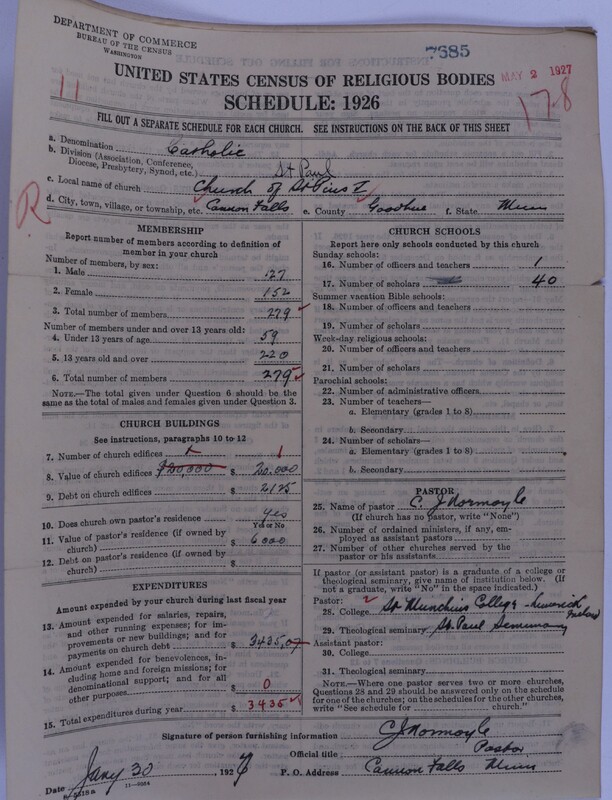 DEPARTMENT OF COMMERCE
BUREAU OF THE CENSUS
WASHINGTON
7685
MAY 2 1927
UNITED STATES CENSUS OF RELIGIOUS BODIES
SCHEDULE: 1926
11
178
FILL OUT A SEPARATE SCHEDULE FOR EACH CHURCH. SEE INSTRUCTIONS ON THE BACK OF THIS SHEET
a. Denomination Catholic
b. Division (Association, Conference, Diocese, Presbytery, Synod, etc.) St Paul
c. Local name of church Church of St Pius V
d. City, town, village, or township, etc. Cannon Falls e. County Goodhue f. State Minn
R
MEMBERSHIP
Report number of members according to definition of member in your church
Number of members, by sex:
1. Male 127
2. Female 152
3. Total number of members 279
Number of members under and over 13 years old:
4. Under 13 years of age 59
5. 13 years old and over 220
6. Total number of members 279
NOTE.—The total given under Question 6 should be the same as the total of males and females given under Question 3.
CHURCH BUILDINGS
See instructions, paragraphs 10 to 12
7. Number of church edifices 1
8. Value of church edifices $20,000 $ 20.000
9. Debt on church edifices $ 2125
10. Does church own pastor's residence yes
Yes or No
11. Value of pastor's residence (if owned by church) $ 6000
12. Debt on pastor's residence (if owned by church) $
EXPENDITURES
Amount expended by your church during last fiscal year
13. Amount expended for salaries, repairs, and other running expenses; for improvements or new buildings; and for payments on church debt $ 3435,07
14. Amount expended for benevolences, including home and foreign missions; for denominational support; and for all other purposes $ 0
15. Total expenditures during year $ 3435
CHURCH SCHOOLS
Report here only schools conducted by this church
Sunday schools:
16. Number of officers and teachers 1
17. Number of scholars 40
Summer vacation Bible schools:
18. Number of officers and teachers
19. Number of scholars
Week-day religious schools:
20. Number of officers and teachers
21. Number of scholars
Parochial schools:
22. Number of administrative officers
23. Number of teachers—
a. Elementary (grades 1 to 8)
b. Secondary
24. Number of scholars—
a. Elementary (grades 1 to 8)
b. Secondary
PASTOR
25. Name of pastor C J Normoyle
(If church has no pastor, write "None")
26. Number of ordained ministers, if any, employed as assistant pastors
27. Number of other churches served by the pastor or his assistants
If pastor (or assistant pastor) is a graduate of a college or theological seminary, give name of institution below. (If not a graduate, write "No" in the space indicated.)
Pastor: 2
28. College St Munchins College - Limerick Ireland
29. Theological seminary St. Paul Seminary
Assistant pastor:
30. College
31. Theological seminary
NOTE.—Where one pastor serves two or more churches, Questions 28 and 29 should be answered only on the schedule for one of the churches; on the schedules for the other churches, write "See schedule for church."
Signature of person furnishing information C J Normoyle
Official title Pastor
Date Jany 30 1927 P. O. Address Cannon Falls Minn
11—8684